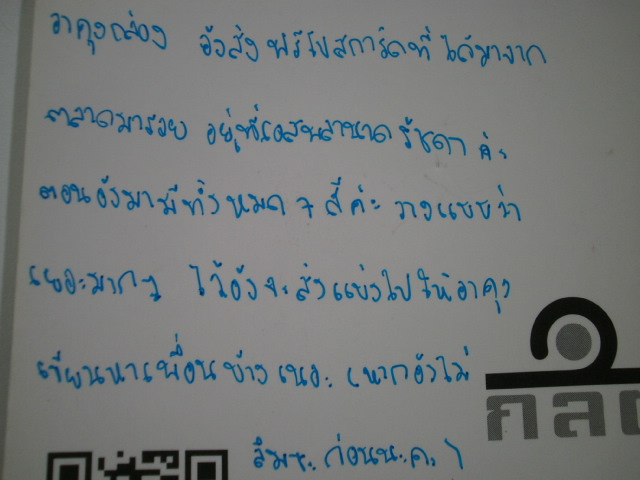 อาคุงกล่อง อังส่งฟรีโปสการ์ดที่ได้มาจาก
ตลาดมารวย อยู่ที่เอสพลานาด รัชดา ค่ะ
ตอนอังมามีทั้งหมด 7 สีค่ะ วางแบบว่า
เยอะมากๆ ไว้อังจะส่งแบ่งไปให้อาคุง
เขียนหาเพื่อนบ้างเนอะ (หากอังไม่
ลืมซะก่อนนะคะ)